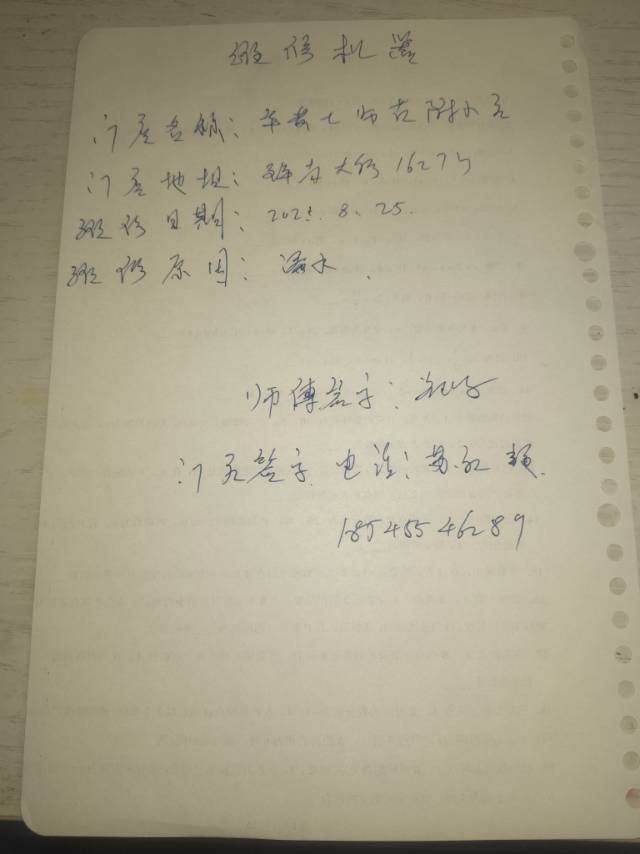 维修机器
门店名称：华莱士师古附小店
门店地址：大街1627号
维修日期：2021.8.25.
维修原因：漏水.
师傅签字：
门店签字 电话：
18545546289